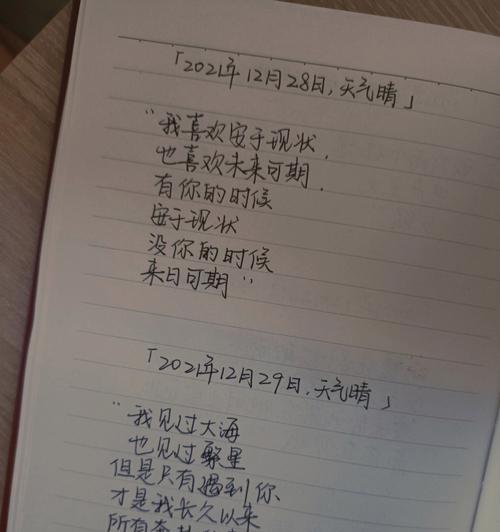 「2021年12月28日，天气晴」
“我喜欢安于现状，
也喜欢未来可期，
有你的时候
安于现状
没你的时候
来日可期”
「2021年12月29日，天气晴」
“我见过大海
也见过繁星
但是只有遇到你
才是我长久以来
所有